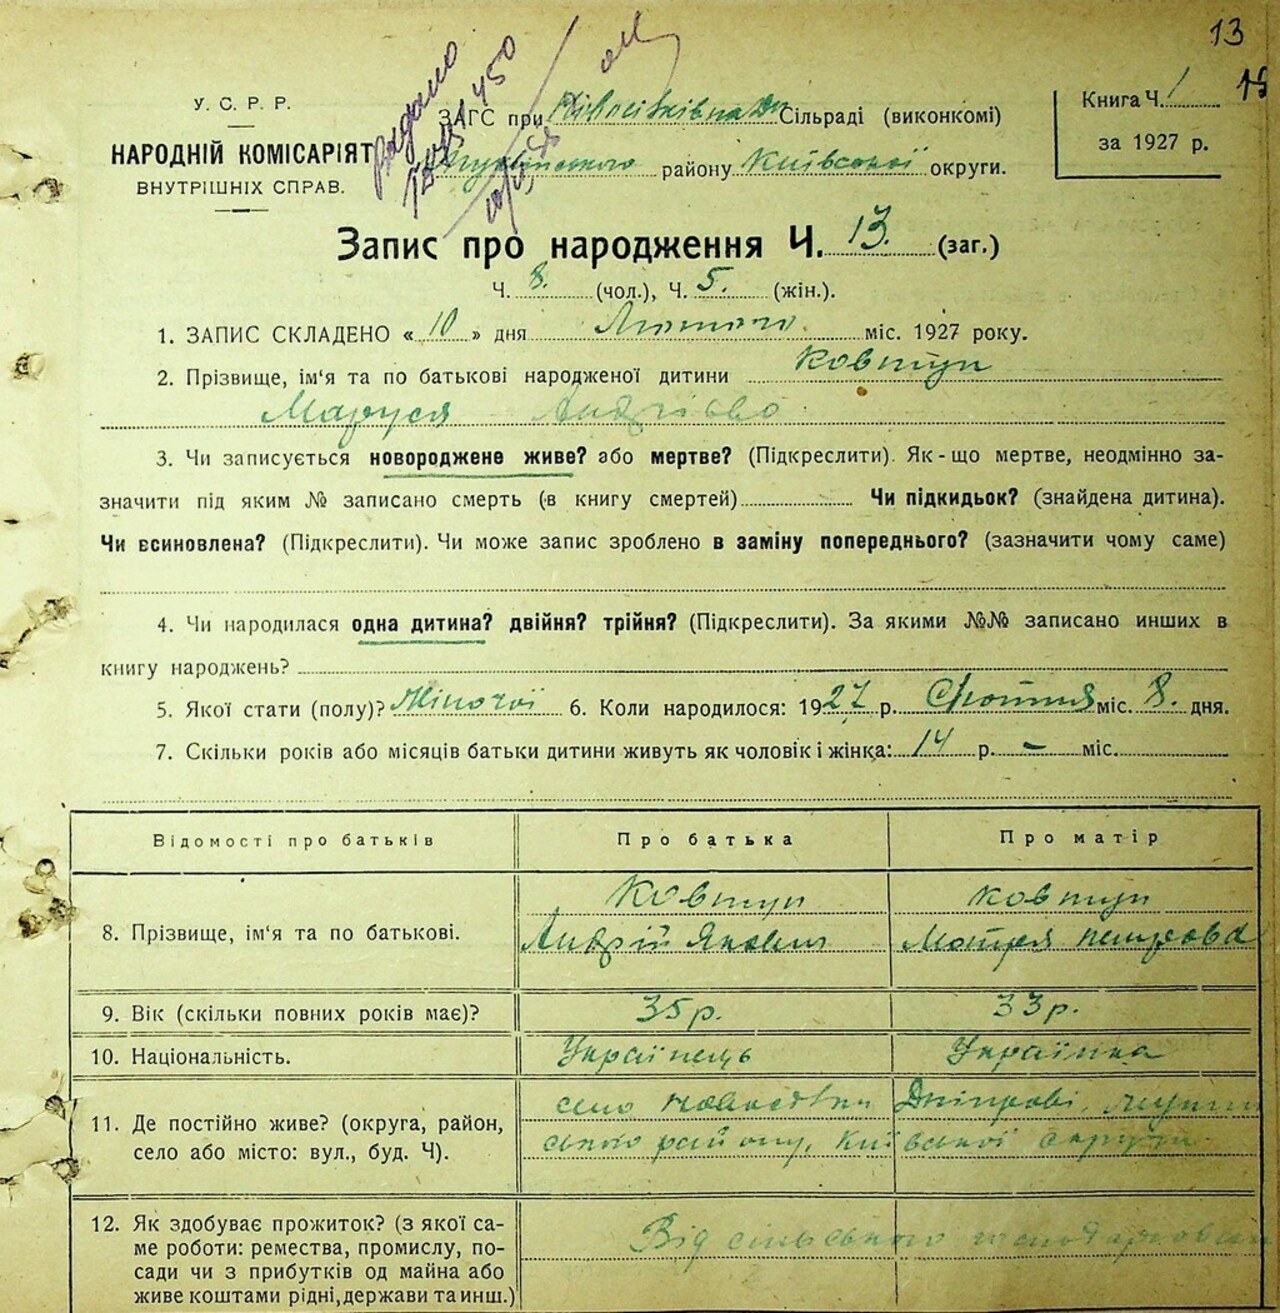 13
У. С. Р. Р.
НАРОДНІЙ КОМІСАРІЯТ
ВНУТРІШНІХ СПРАВ.
видано
450
ЗАГС при Сільраді (виконкомі)
району Київської округи.
Книга Ч. 1
за 1927 р.
Запис про народження Ч. 13. (заг.)
Ч. 8. (чол.), Ч. 5. (жін.).
1. ЗАПИС СКЛАДЕНО « 10 » дня Лютого міс. 1927 року.
2. Прізвище, ім'я та по батькові народженої дитини Ковтун
Маруся Андрієва
3. Чи записується новороджене живе? або мертве? (Підкреслити). Як-що мертве, неодмінно за-
значити під яким № записано смерть (в книгу смертей) Чи підкидьок? (знайдена дитина).
Чи всиновлена? (Підкреслити). Чи може запис зроблено в заміну попереднього? (зазначити чому саме)
4. Чи народилася одна дитина? двійня? трійня? (Підкреслити). За якими №№ записано инших в
книгу народжень?
5. Якої стати (полу)? Жіночої 6. Коли народилося: 1927 р. міс. 8. дня.
7. Скільки років або місяців батьки дитини живуть як чоловік і жінка: 14 р. – міс.
Відомості про батьків Про батька Про матір
8. Прізвище, ім'я та по батькові. Ковтун Ковтун
Андрій Якович Мотря Петрова
9. Вік (скільки повних років має)? 35 р. 33 р.
10. Національність. Українець Українка
11. Де постійно живе? (округа, район, село Дніпрові,
село або місто: вул., буд. Ч). ського району, Київської округи
12. Як здобуває прожиток? (з якої са- Від сільського
ме роботи: ремества, промислу, по-
сади чи з прибутків од майна або
живе коштами рідні, держави та инш.)